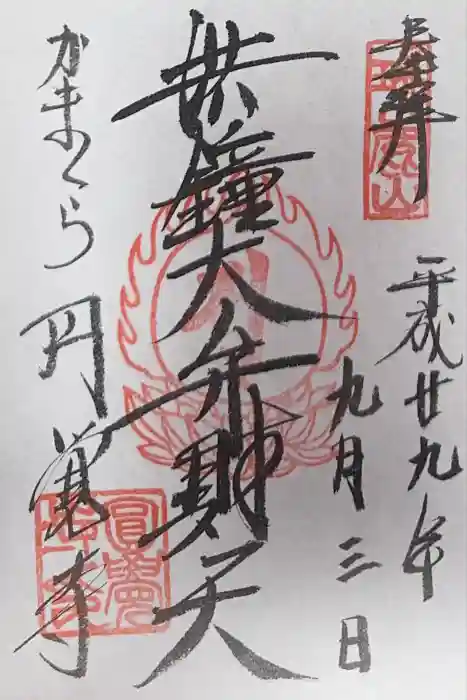 奉拝
平成廿九年
九月三日
洪鐘大弁財天
かまくら円覚寺